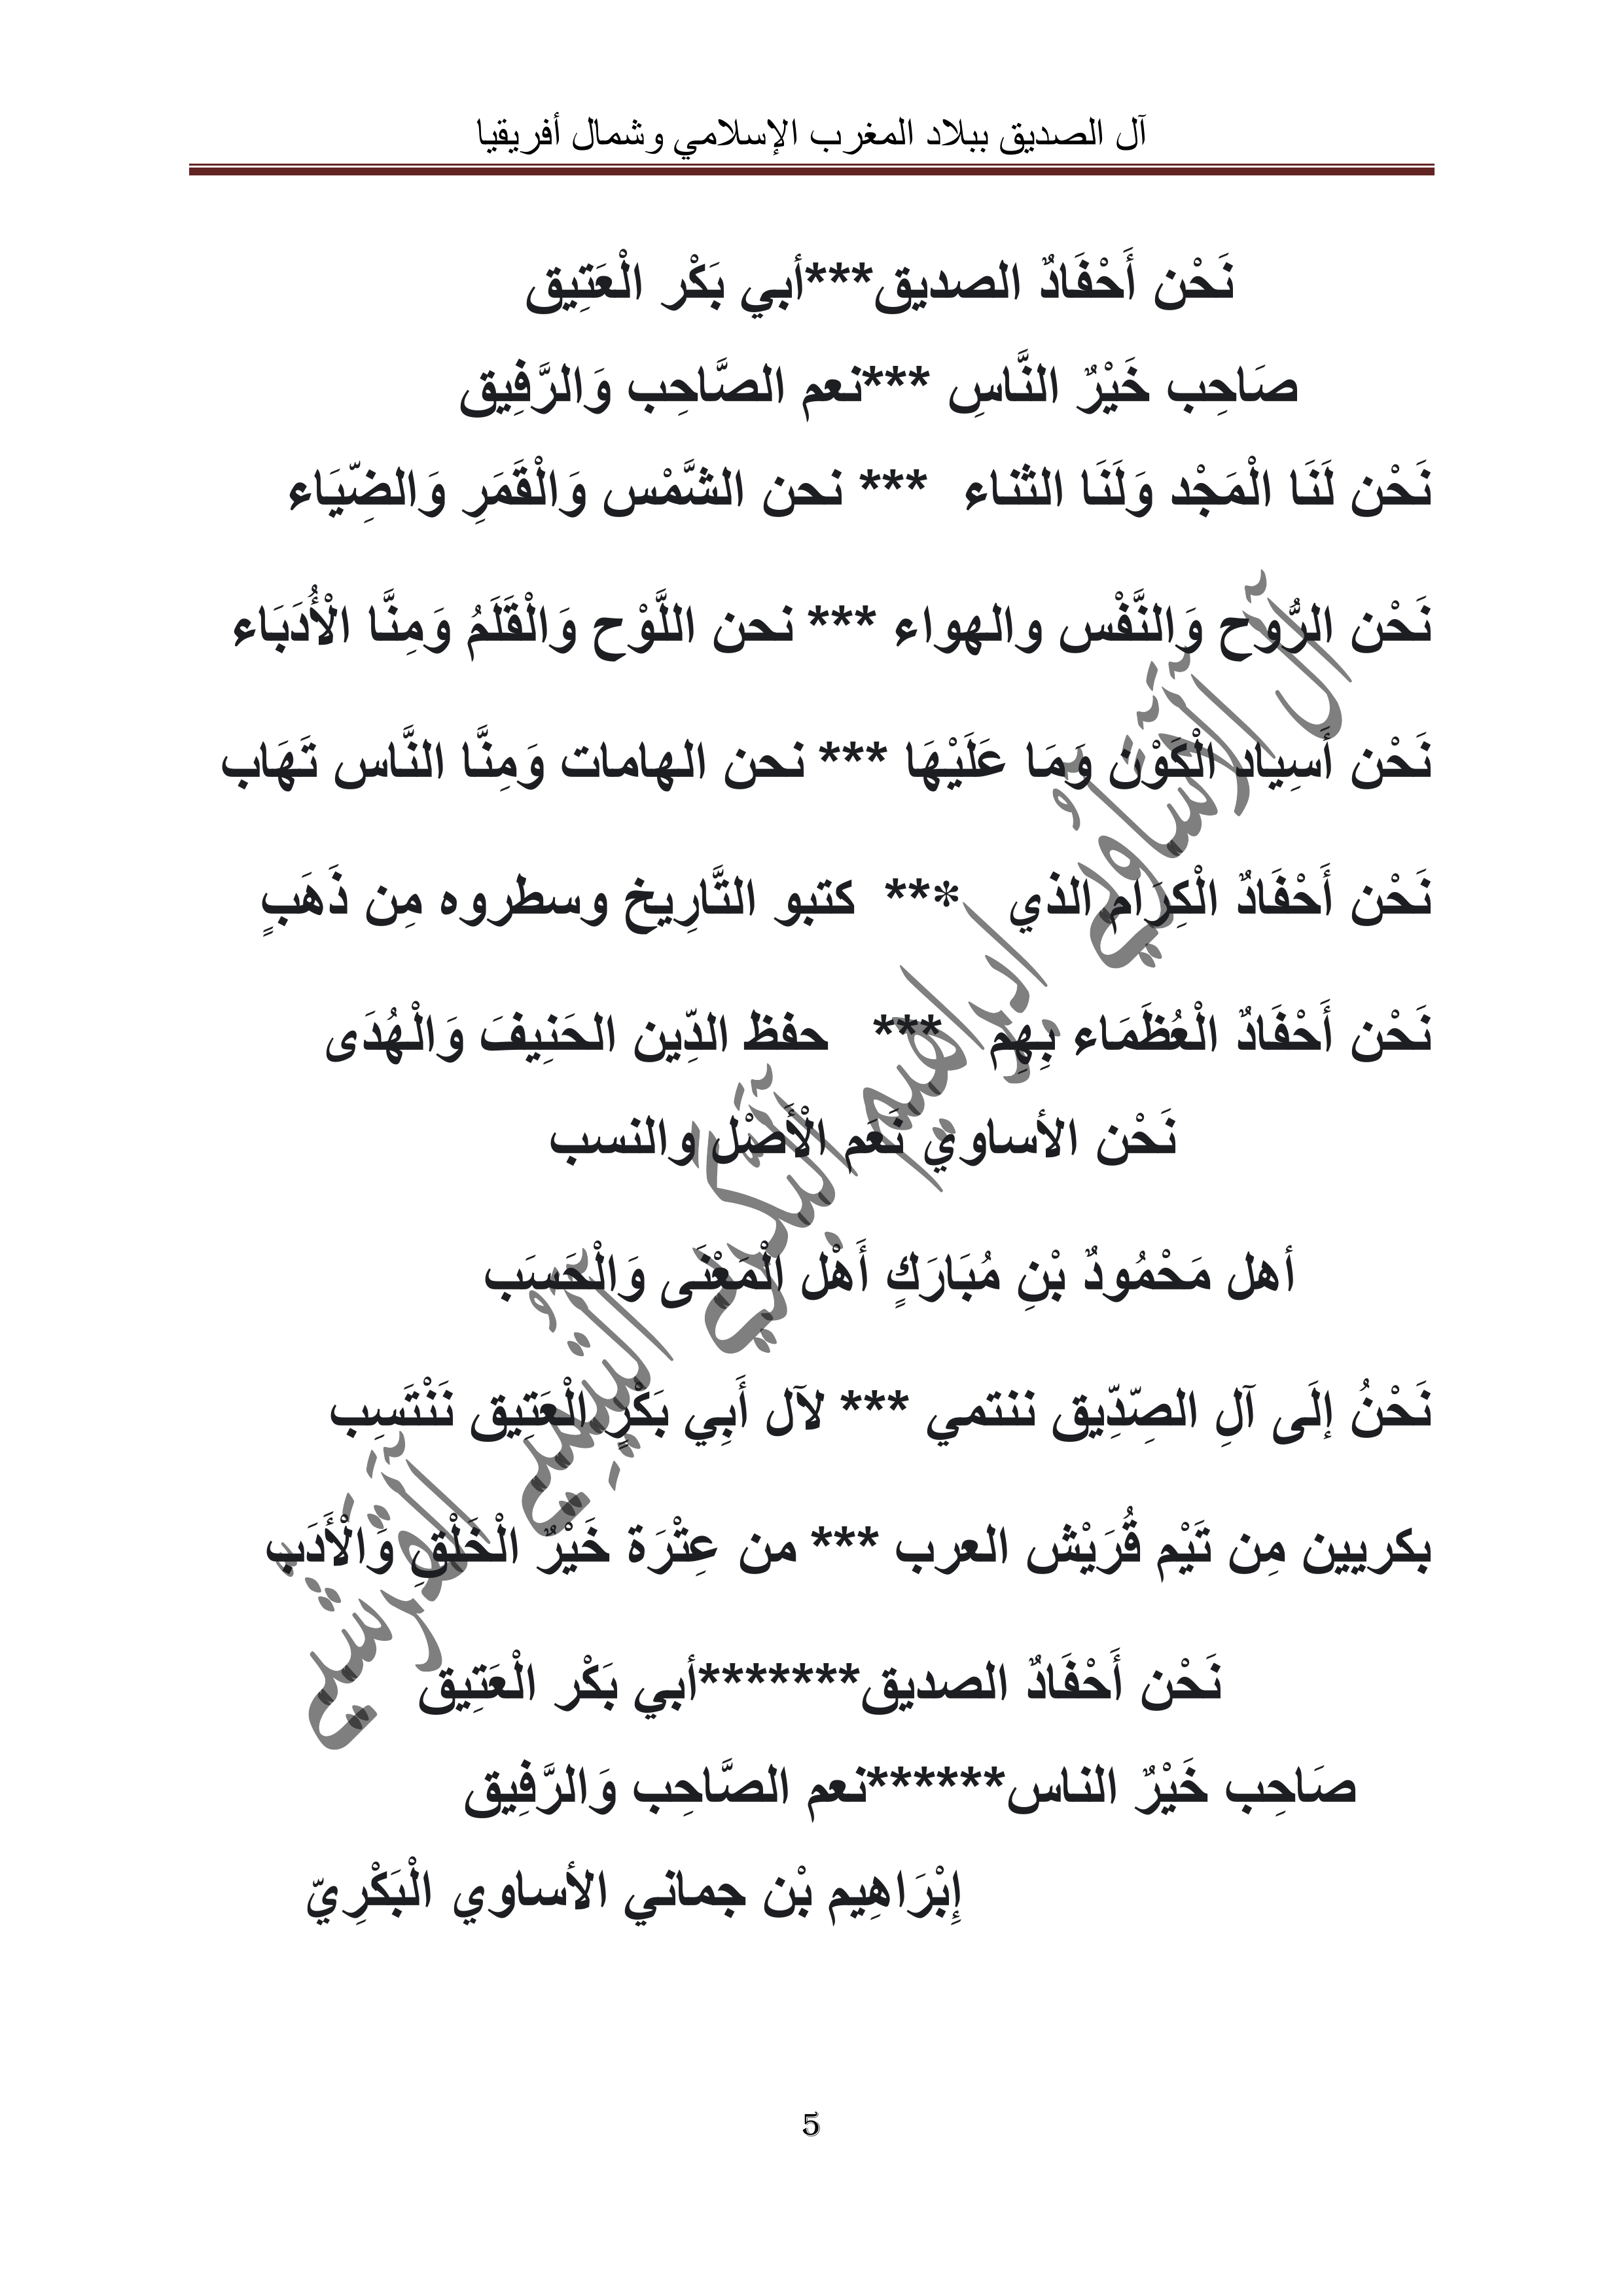 آل الصديق ببلاد المغرب الإسلامي وشمال أفريقيا
نَحْن أَحْفَادٌ الصديق***أبي بَكْر الْعَتِيق
صَاحِب خَيْرٌ النَّاسِ ***نعم الصَّاحِب وَالرَّفِيق
نَحْن لَنَا الْمَجْد وَلَنَا الثناء *** نحن الشَّمْس وَالْقَمَرِ وَالضِّيَاء
نَحْن الرُّوح وَالنَّفْس والهواء *** نحن اللَّوْح وَالْقَلَمُ وَمِنَّا الْأُدَبَاء
نَحْن أَسِياد الْكَوْن وَمَا عَلَيْهَا *** نحن الهامات وَمِنَّا النَّاس تَهَاب
نَحْن أَحْفَادٌ الْكِرَام الذي *** كتبو التَّارِيخ وسطروه مِن ذَهَبٍ
نَحْن أَحْفَادٌ الْعُظَمَاء بِهِم *** حفظ الدِّين الحَنِيفَ وَالْهُدَى
نَحْن الأساوي نَعَم الْأَصْل والنسب
أهل مَحْمُودٌ بْنِ مُبَارَكٍ أَهْل الْمَعْنَى وَالْحَسَب
نَحْنُ إلَى آلِ الصِّدِّيق ننتمي *** لآل أَبِي بَكْرٍ الْعَتِيق نَنْتَسِب
بكريين مِن تَيْم قُرَيْش العرب *** من عِتْرَة خَيْرٌ الْخَلْقِ وَالْأَدَب
نَحْن أَحْفَادٌ الصديق*******أبي بَكْر الْعَتِيق
صَاحِب خَيْرٌ الناس******نعم الصَّاحِب وَالرَّفِيق
إِبْرَاهِيم بْن جماني الأساوي الْبَكْرِيّ
آل الأساوي ابراهيم البكري التيمي القرشي
5